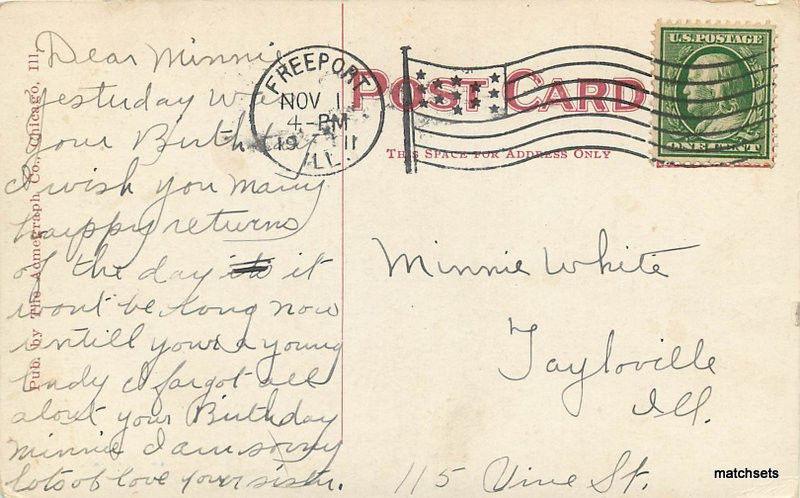 Dear Minnie
yesterday was
your Birthday
I wish you many
happy returns
of the day it
wont be long now
untill your a young
Lady I forgot all
about your Birthday
Minnie I am sorry
lots of love your sister.
Pub. by The Acmegraph Co., Chicago, Ill.
FREEPORT
NOV 1
4-PM
1911
ILL.
POST CARD
THIS SPACE FOR ADDRESS ONLY
U.S. POSTAGE
ONE CENT
Minnie White
Tayloville
Ill.
115 Vine St.
matchsets